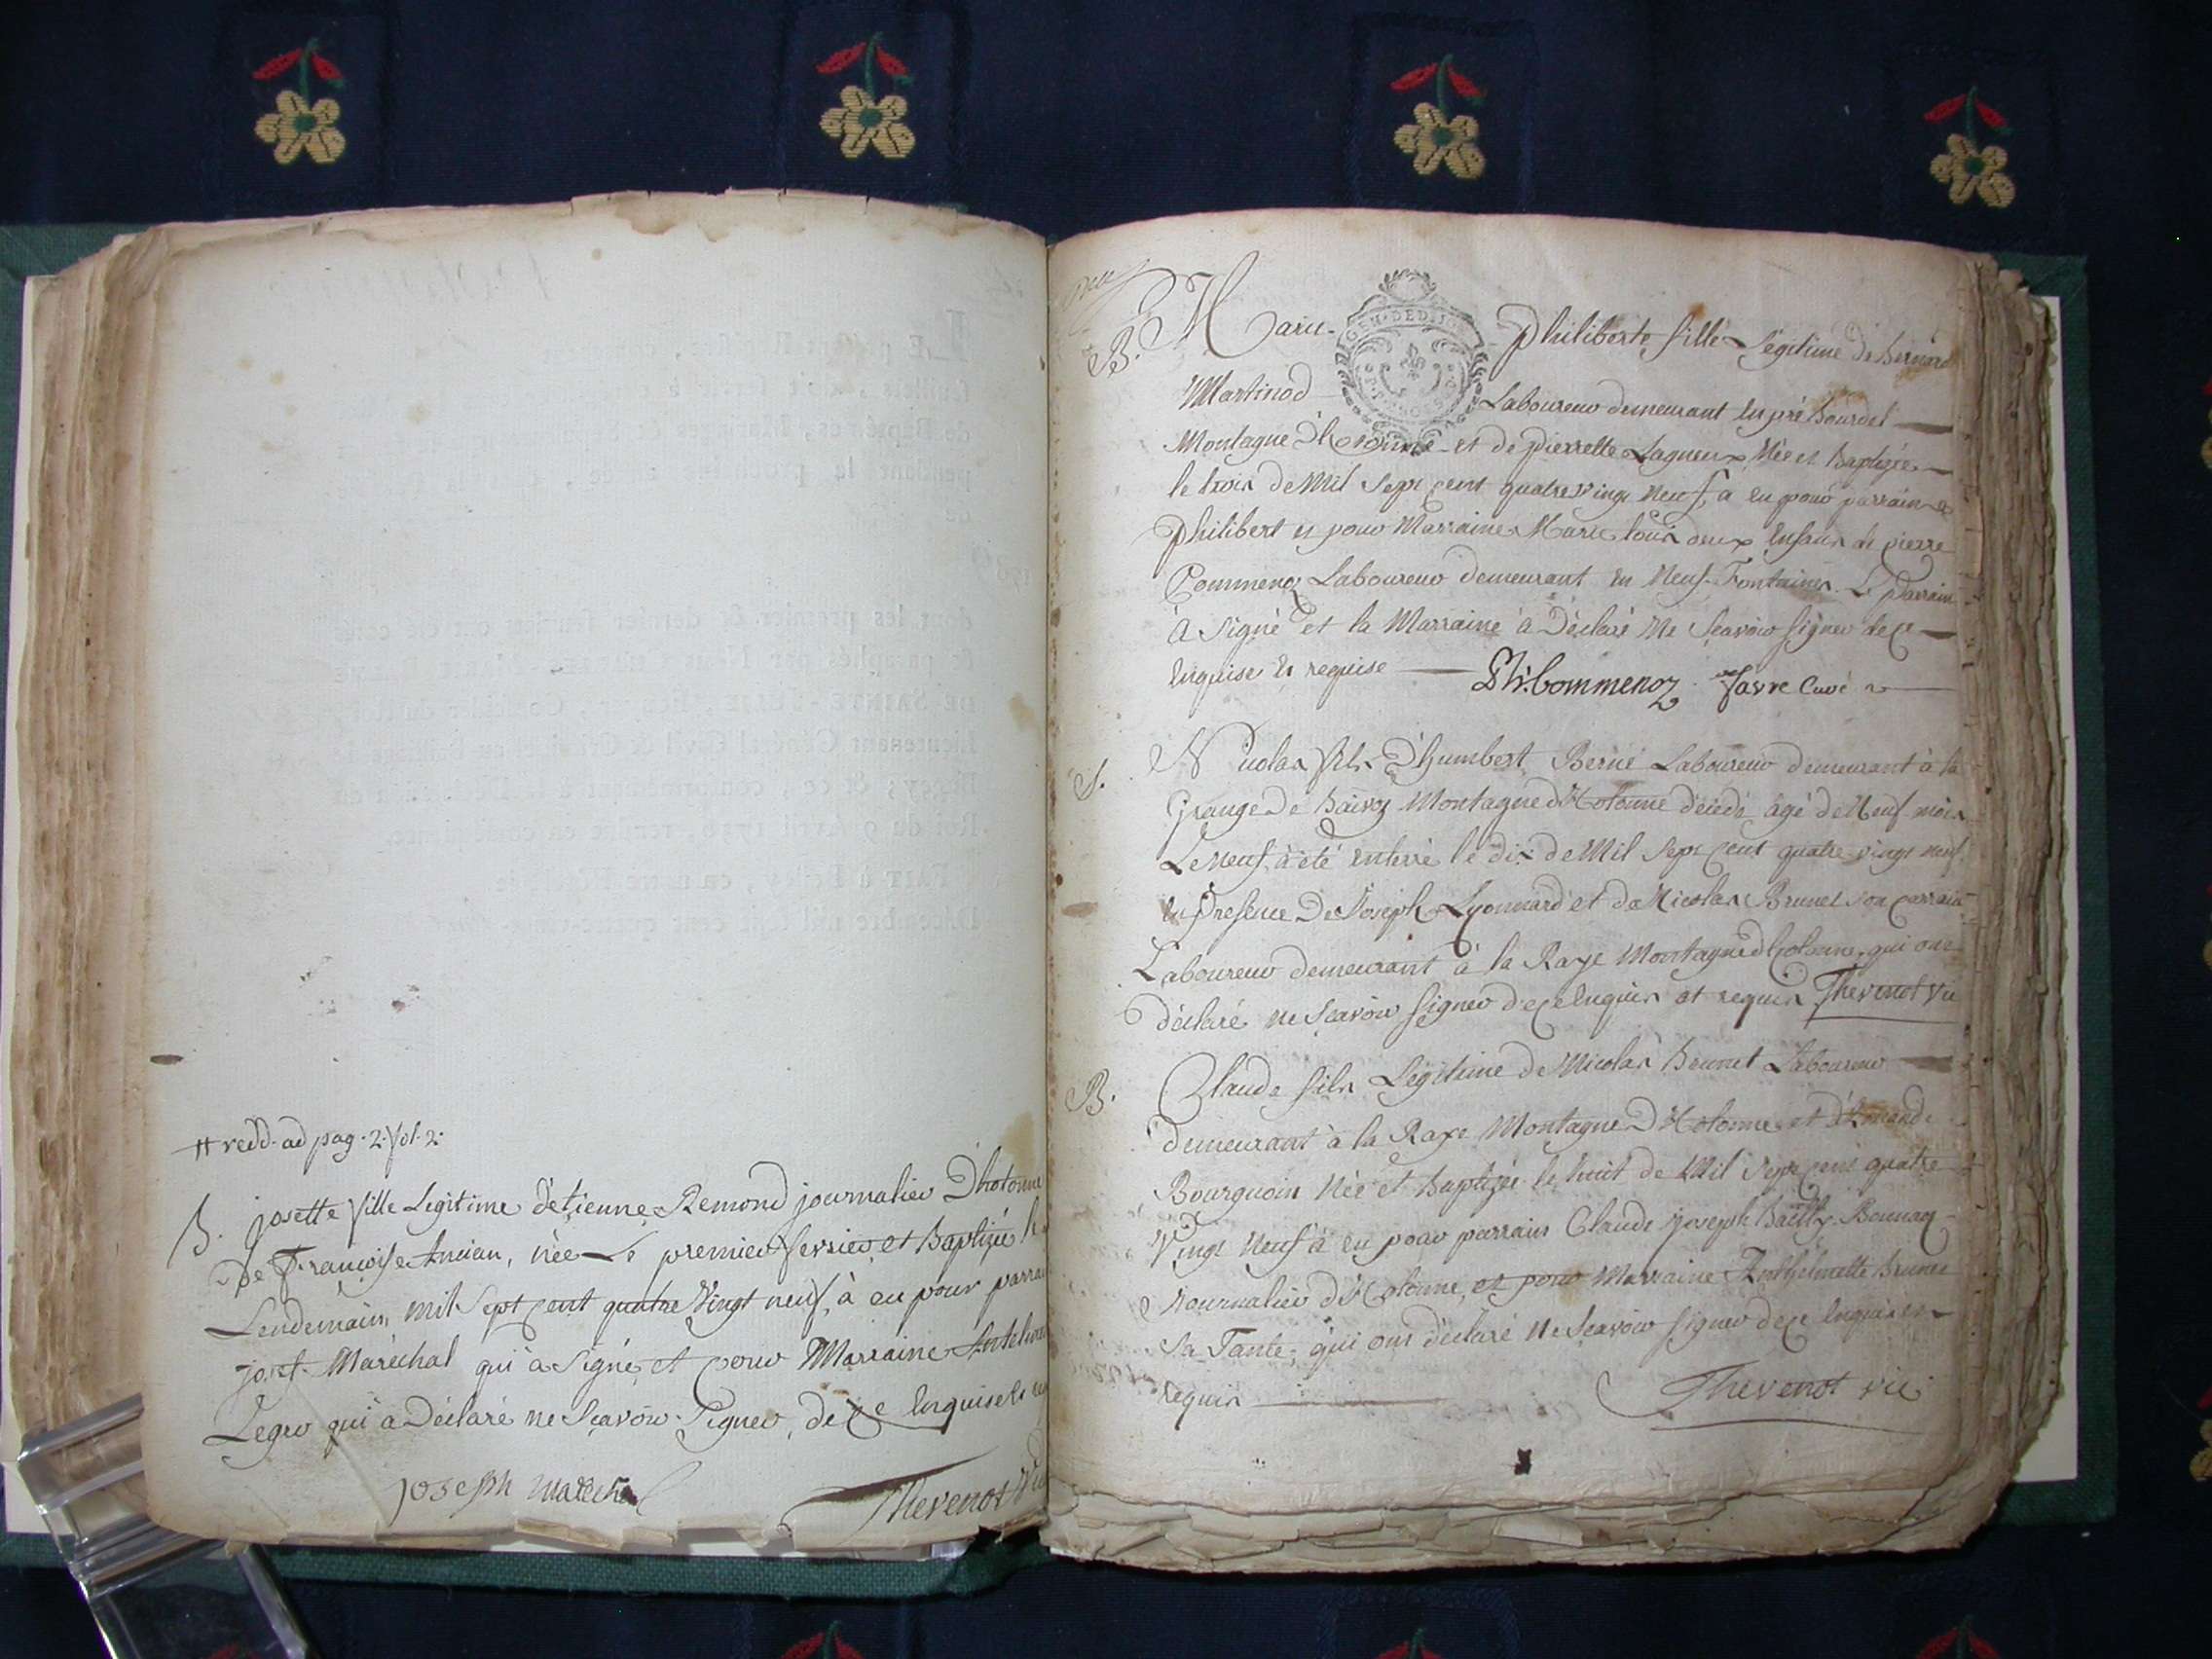 # redd. ad pag. 2. fol. 2.
B. josette fille Legitime d'etienne Remond journalier D'hotonne
de Françoise Ancian, née Le premier fevrier, et Baptizée le
Lendemain, mil sept cent quatre Vingt neuf, à eu pour parrai
josf. Maréchal qui a signé, et pour Marraine Antelme
Legro qui a Déclaré ne Sçavoir Signer, de ce Enquise et
joseph marechal
Thevenot Vic
B. Marie Philiberte fille Légitime de Bernard
GEN. DE DIJON
Martinod Laboureur demeurant en pré Bourdel
Montagne D'hotonne et de pierrette Lagneux, Née et Baptizée
le trois de Mil Sept cent quatre Vingt Neuf, a eu pour parrain
Philibert et pour Marraine Marie tous deux Enfans de pierre
Commenoz Laboureur demeurant en Neuf-Fontaines. Le Parrain
à Signé et la Marraine à Déclaré Ne Sçavoir signer de ce
Enquise et requise Phi. Commenoz favre Curé
S. Nicolas fils D'humbert Berné Laboureur demeurant à la
Grange De Montagne d'Hotonne décédé agé de Neuf mois
Le Neuf, à été enterré le dix de Mil Sept cent quatre vingt neuf
en Presence De Joseph Lyonnard et de Nicolas Brunet son parrain
Laboureur demeurant à la Raye Montagne d'hotonne, qui ont
déclaré ne Sçavoir signer de ce Enquis et requis Thevenot vic
B. Claude fils Légitime de Nicolas Brunet Laboureur
demeurant à la Raye Montagne D'Hotonne et
Bourguoin Née et Baptizée le huit de Mil Sept cent quatre
Vingt Neuf à eu pour parrain Claude joseph Bailly
Journalier d'Hotonne, et pour Marraine Anthelmette Brunet
Sa Tante, qui ont déclaré Ne Sçavoir signer de ce Enquis et
requis Thevenot vic